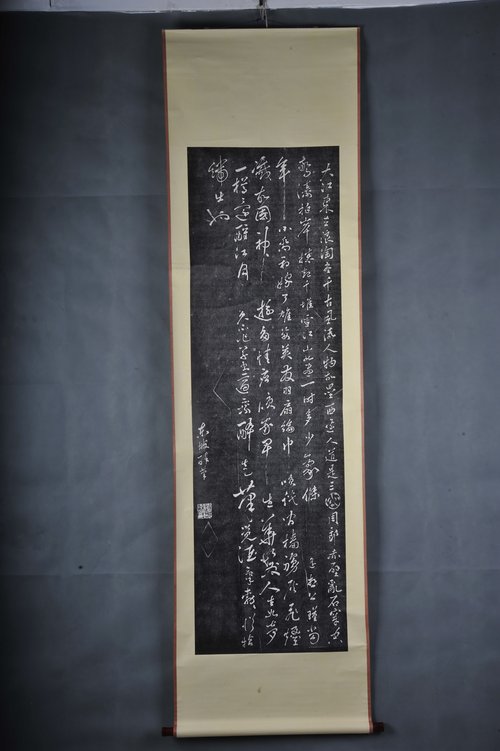 大江東去浪淘盡千古風流人物故壘西邊人道是三國周郎赤壁亂石穿空
驚濤拍岸捲起千堆雪江山如畫一時多少豪傑 遙想公瑾當
年小喬初嫁了雄姿英發羽扇綸巾 笑談間檣艣灰飛煙
滅故國神遊多情應笑我早生華髮人生如夢
一樽還酹江月 久不作草書適乘醉走筆覺酒氣勃勃似指
端出也
東坡醉筆